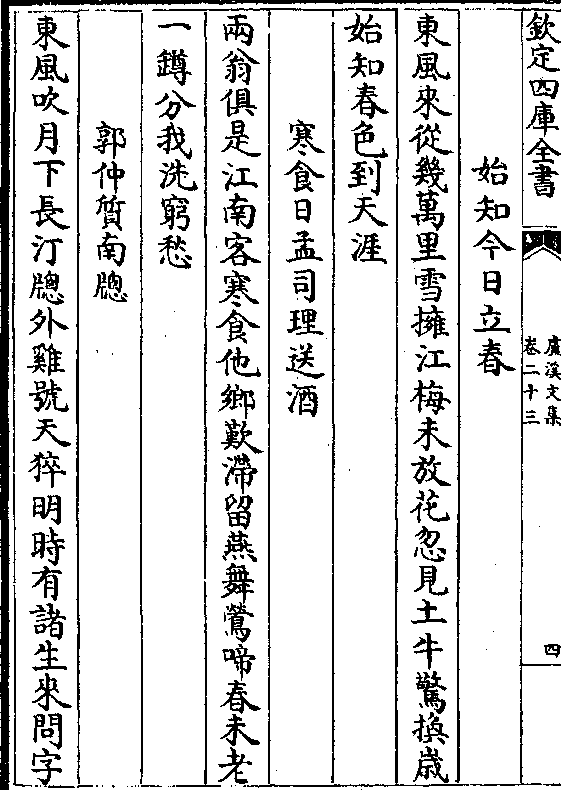 欽定四庫全書
盧溪文集
卷二十三
四
始知今日立春
東風來從幾萬里雪擁江梅未放花忽見土牛驚換歳
始知春色到天涯
寒食日孟司理送酒
兩翁俱是江南客寒食他鄉歎滯留燕舞鶯啼春未老
一罇分我洗窮愁
郭仲質南牎
東風吹月下長汀牎外雞號天猝明時有諸生來問字